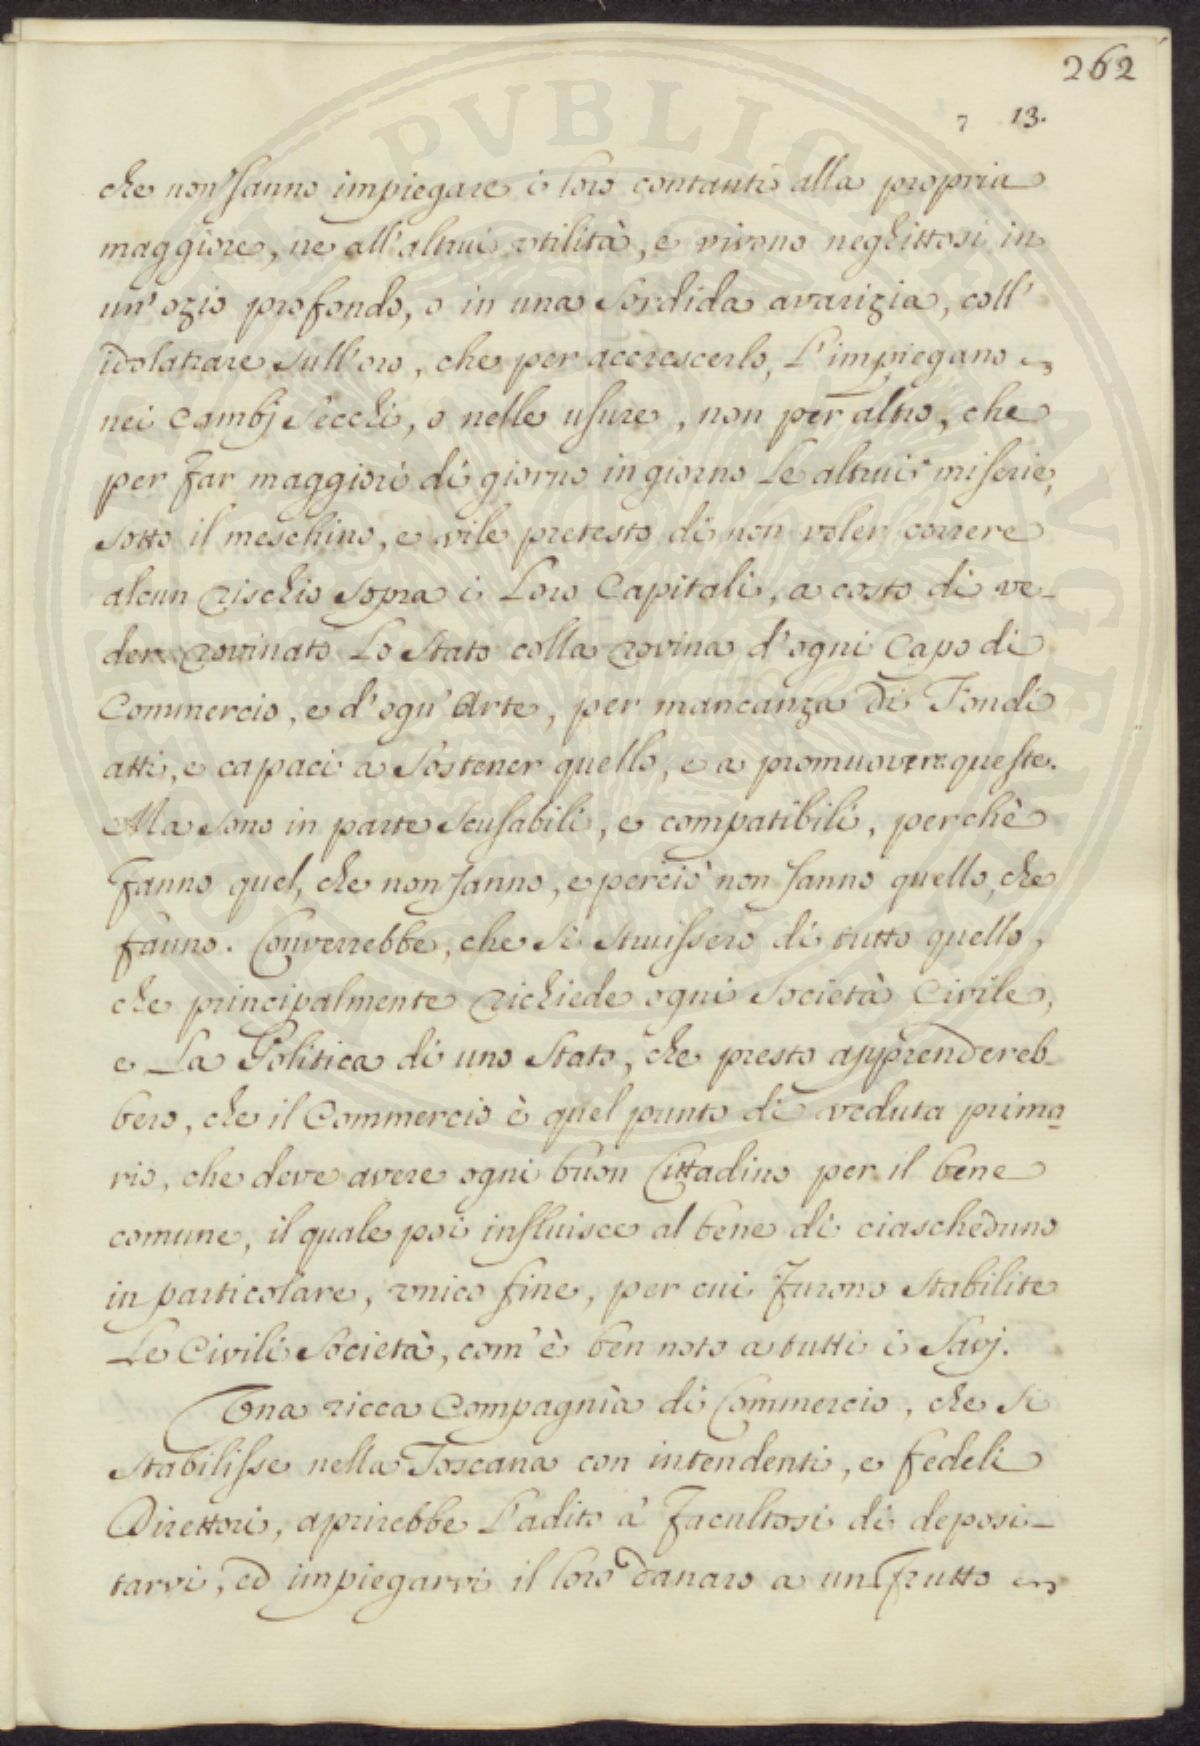 262
7 13.
che non sanno impiegare i loro contanti alla propria
maggiore, ne all'altrui vtilità, e vivono neghittosi in
un'ozio profondo, o in una sordida avarizia, coll'
idolatrare sull'oro, che per accrescerlo, l'impiegano
nei Cambj secchi, o nelle usure, non per altro, che
per far maggiori di giorno in giorno le altrui miserie,
sotto il meschino, e vile pretesto di non voler correre
alcun rischio sopra i loro Capitali, a costo di ve-
der rovinato lo stato colla rovina d'ogni Capo di
Commercio, e d'ogn'Arte, per mancanza di Fondi
atti, e capaci a sostener quello, e a promuovere queste.
Ma sono in parte scusabili, e compatibili, perchè
fanno quel, che non sanno, e perciò non sanno quello, che
fanno. Converrebbe, che si struissero di tutto quello,
che principalmente richiede ogni società Civile,
e la Politica di uno stato, che presto apprendereb-
bero, che il Commercio è quel punto di veduta prima-
rio, che deve avere ogni buon Cittadino per il bene
comune, il quale poi influisce al bene di ciascheduno
in particolare, vnico fine, per cui furono stabilite
le Civili società, com'è ben noto a tutti i Savj.
Una ricca Compagnìa di Commercio, che si
stabilisse nella Toscana con intendenti, e fedeli
Direttori, aprirebbe l'adito a' facultosi di deposi-
tarvi, ed impiegarvi il loro danaro a un frutto